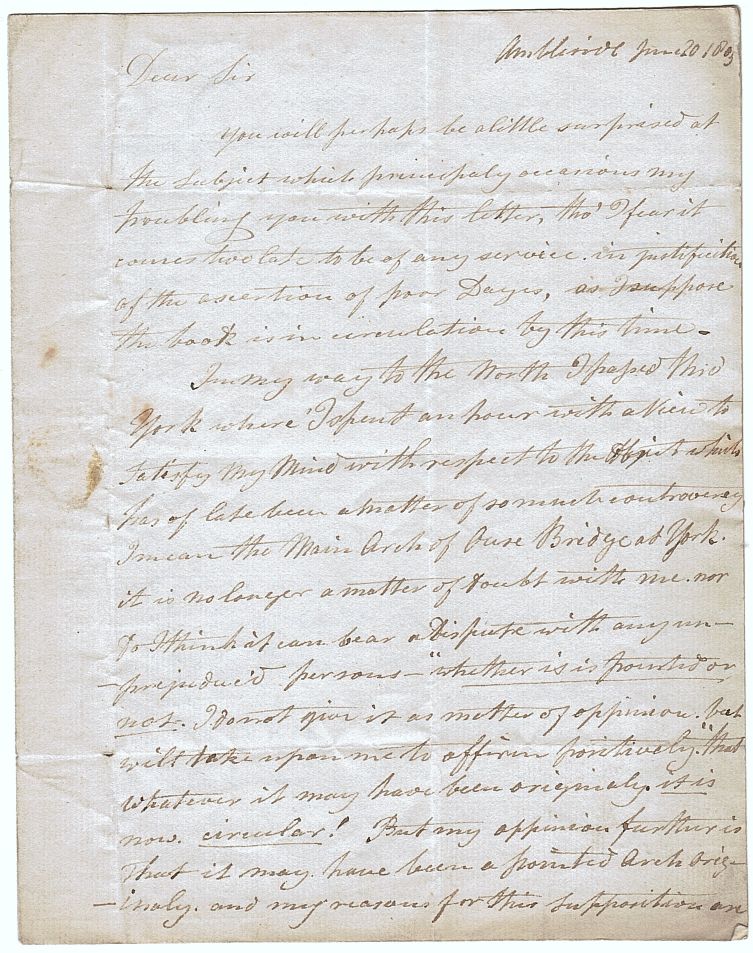 Ambleside June 20 1805
Dear Sir
You will perhaps be a little surprised at
the subject which principaly occasions my
troubling you with this letter, tho' I fear it
comes two late to be of any service. in justification
of the assertion of poor Dayes, as I suppose
the book is in circulation by this time –
In my way to the North I passed thro
York where I spent an hour with a View to
satisfy my Mind with respect to the Object which
has of late been a matter of so much controversy
I mean the Main Arch of Ouse Bridge at York.
it is no longer a matter of Doubt with me. nor
do I think it can bear a Dispute with any un–
–prejudic'd persons – "whether is is pointed or
not. I do not give it as matter of oppinion. but
will take upon me to affirm positively. "that
whatever it may have been originaly. it is
now. circular! But my oppinion further is
That it may have been a pointed Arch orig–
–inaly. and my reasons for this supposition are